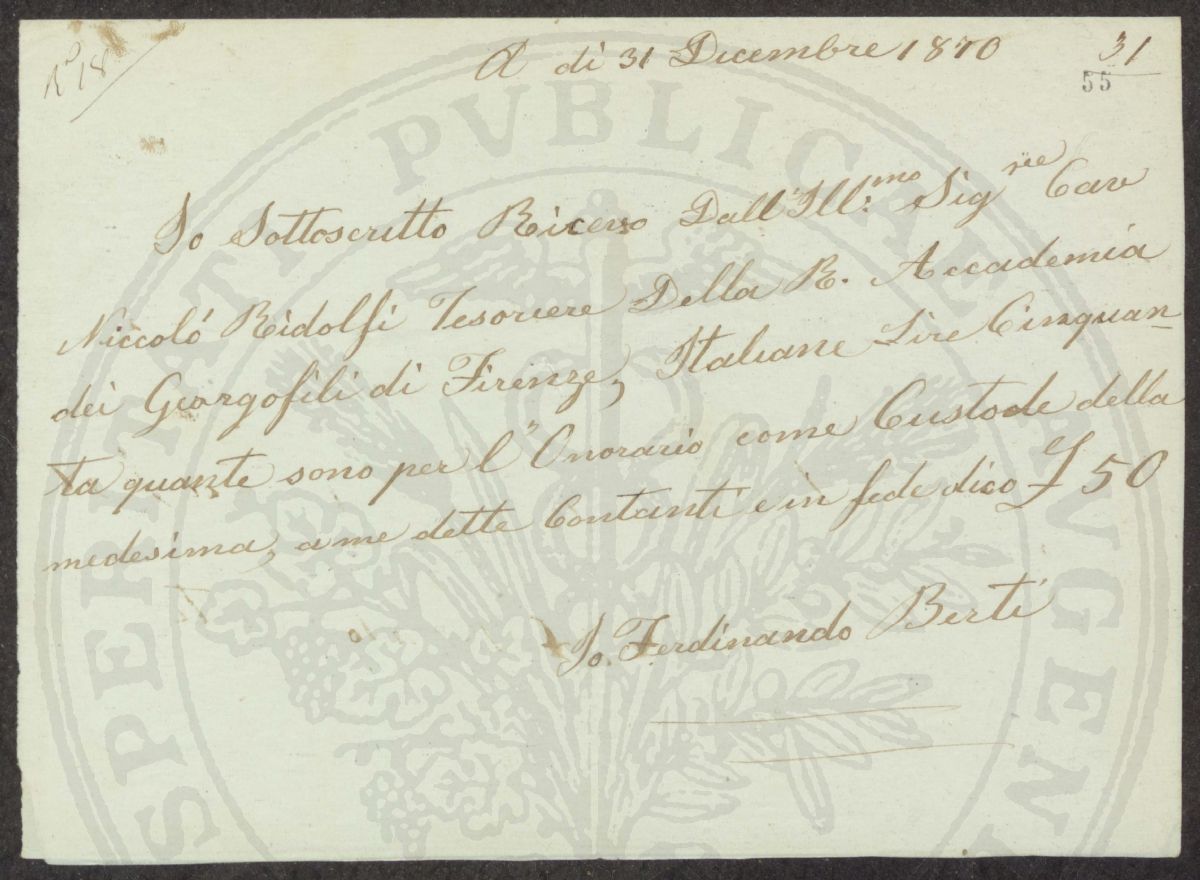 Nº 18
A dì 31 Dicembre 1870
31
55
Io Sottoscritto Ricevo Dall'Ill:mo Sigre Cav
Niccoló Ridolfi Tesoriere Della R. Accademia
dei Georgofili di Firenze, Italiane Lire Cinquan-
ta quante sono per l'Onorario come Custode della
medesima, a me dette Contanti e in fede dico £ 50
Io. Ferdinando Berti
PROSPERITATI PVBLICAE AVGENDAE